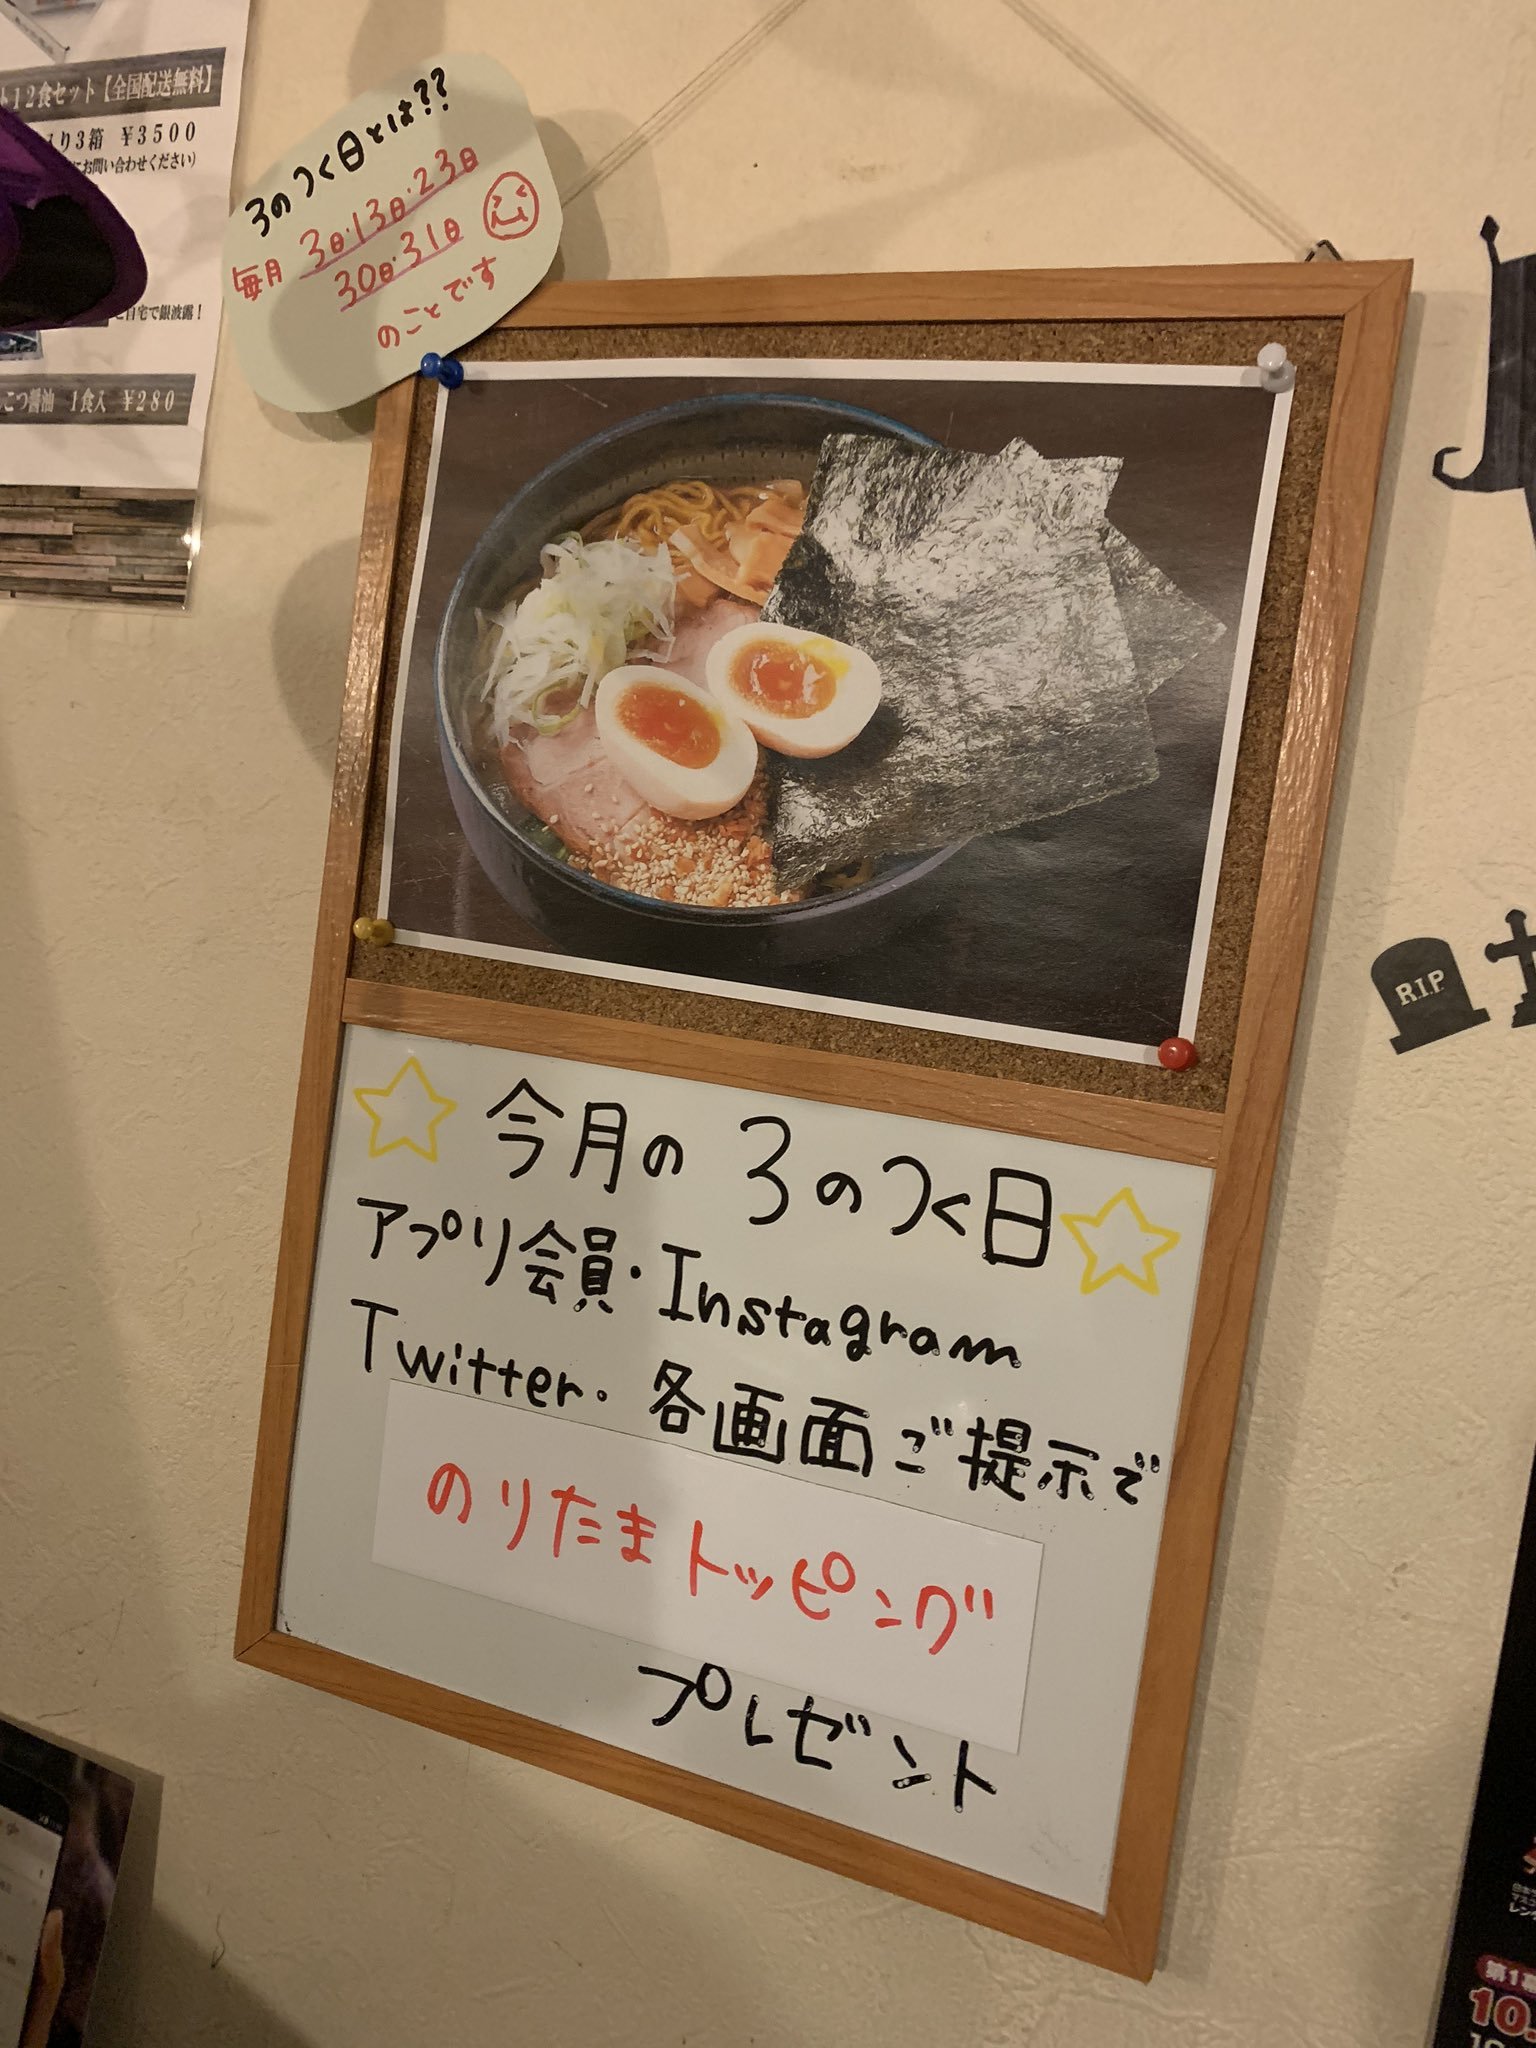 ト12食セット【全国配送無料】
入り3箱 ¥3500
にお問い合わせください)
ご自宅で銀波露!
こつ醤油 1食入 ¥280
3のつく日とは??
毎月 3日・13日・23日
30日・31日
のことです
今月の 3のつく日
アプリ会員・Instagram
Twitter・各画面ご提示で
のりたまトッピング
プレゼント
R.I.P
第1
10